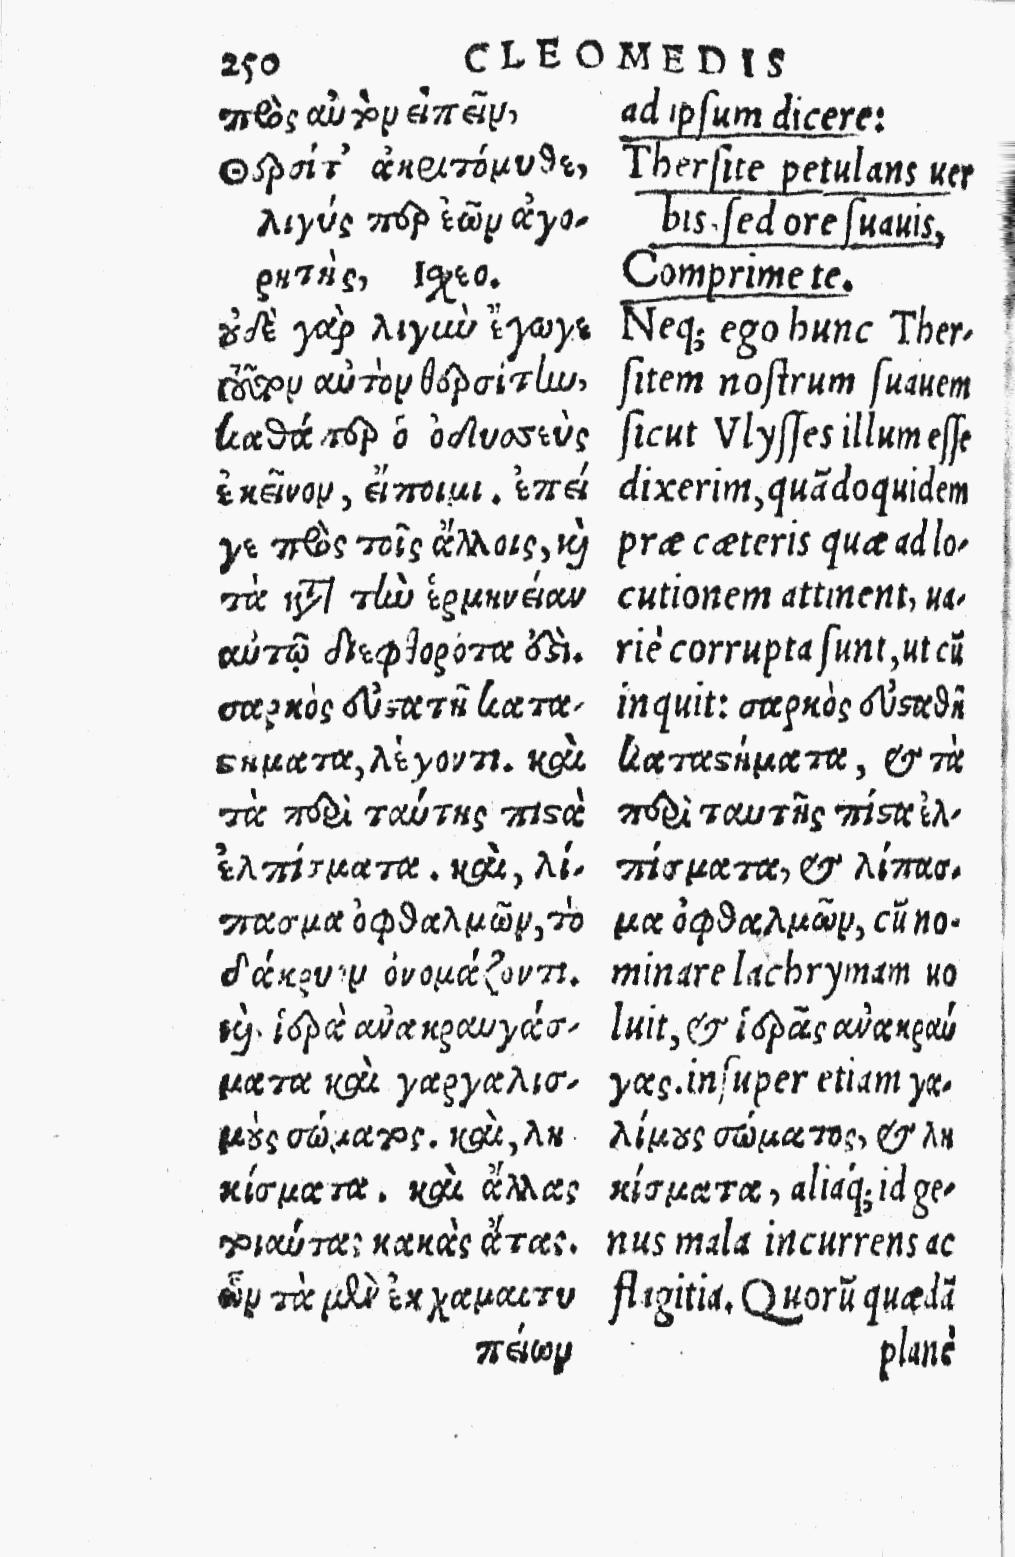 250 CLEOMEDIS
πρὸς αὐτὸν εἰπεῖν,
Θερσίτ' ἀκριτόμυθε,
λιγύς περ ἐὼν ἀγο-
ρητής, Ἴσχεο.
οὐδὲ γὰρ λιγὺν ἔγωγε
τοῦτον αὐτὸν θερσίτην,
καθάπερ ὁ ὀδυσσεὺς
ἐκεῖνον, εἴποιμι. ἐπεί
γε πρὸς τοῖς ἄλλοις, καὶ
τὰ κατὰ τὴν ἑρμηνείαν
αὐτῷ διεφθορότα ἐστὶ.
σαρκὸς εὐσταθῆ κατα-
στήματα, λέγοντι. καὶ
τὰ περὶ ταύτης πιστὰ
ἐλπίσματα. καὶ, λί-
πασμα ὀφθαλμῶν, τὸ
δάκρυον ὀνομάζοντι.
καὶ ἱερὰ ανακραυγάσ-
ματα καὶ γαργαλισ-
μοὺς σώματος. καὶ, λη
κίσματα. καὶ ἄλλας
τοιαύτας κακὰς ἄτας.
ὧν τὰ μὲν ἐκ χαμαιτυ
πείων
ad ipsum dicere:
Thersite petulans uer
bis. sed ore suauis,
Comprime te.
Neq; ego hunc Ther-
sitem nostrum suauem
sicut Vlysses illum esse
dixerim, quãdoquidem
præ cæteris quæ ad lo-
cutionem attinent, ua-
riè corrupta sunt, ut cũ
inquit: σαρκὸς εὐσταθῆ
καταστήματα, & τὰ
περὶ ταυτῆς πίστα ἐλ-
πίσματα, & λίπασ-
μα ὀφθαλμῶν, cũ no-
minare lachrymam uo
luit, & ἱερᾶς ανακραύ
γας. insuper etiam γα-
λίμους σώματος, & λη
κίσματα, aliaq́; id ge-
nus mala incurrens ac
flagitia. Quorũ quædã
planè